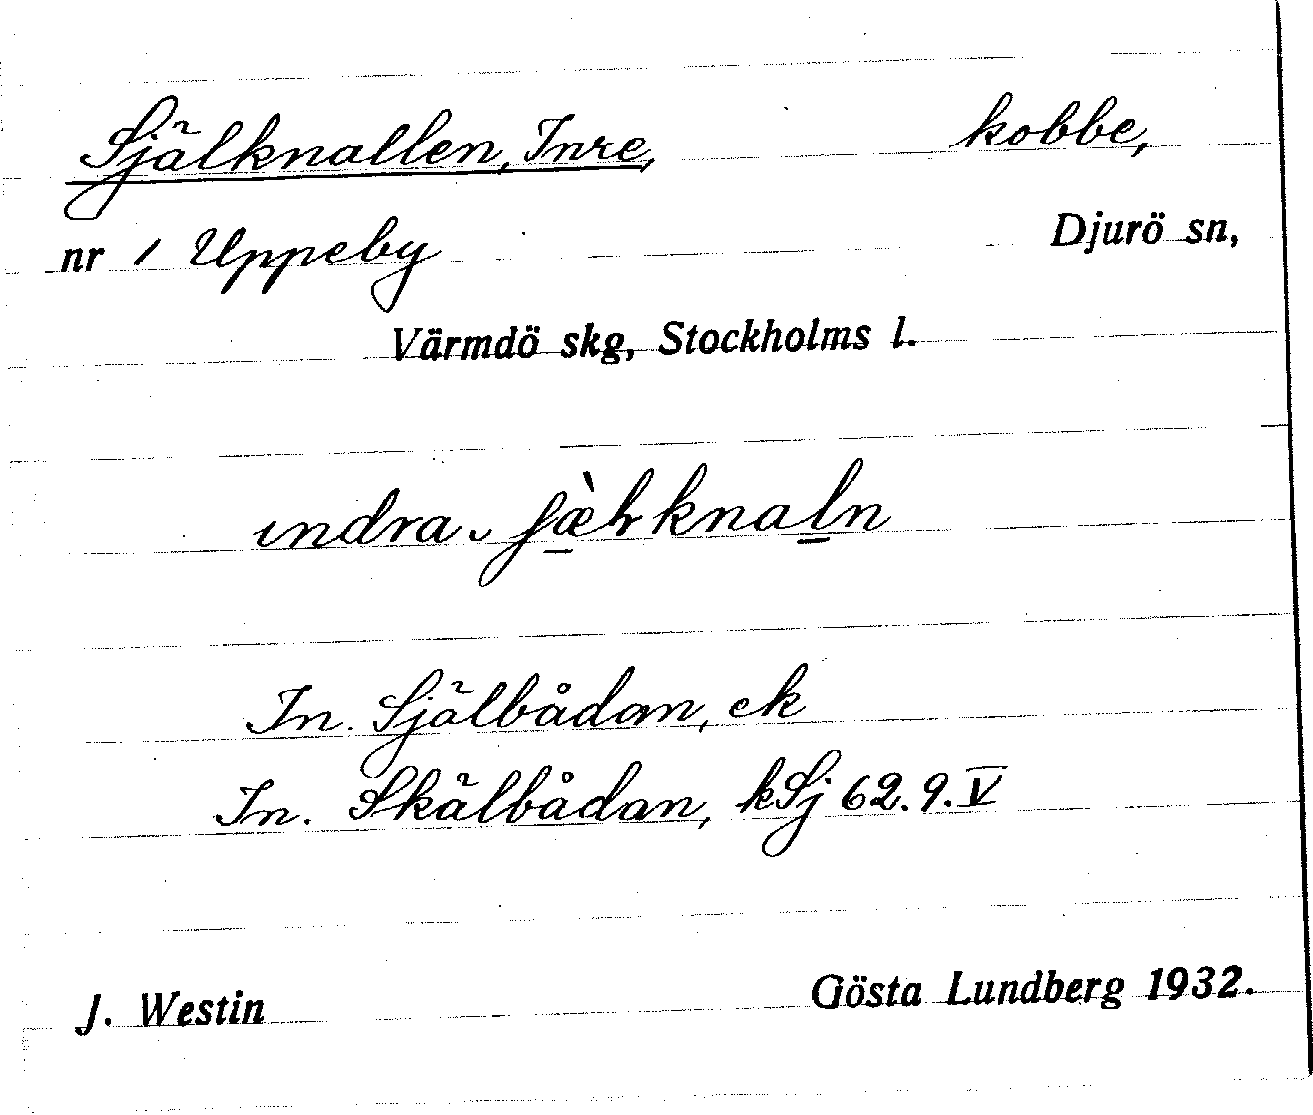 Själknallen, Inre, kobbe,
nr 1 Uppeby Djurö sn,
Värmdö skg, Stockholms l.
In. Själbådan, ek
In. Skälbådan, kSj 62.9.V
J. Westin Gösta Lundberg 1932.